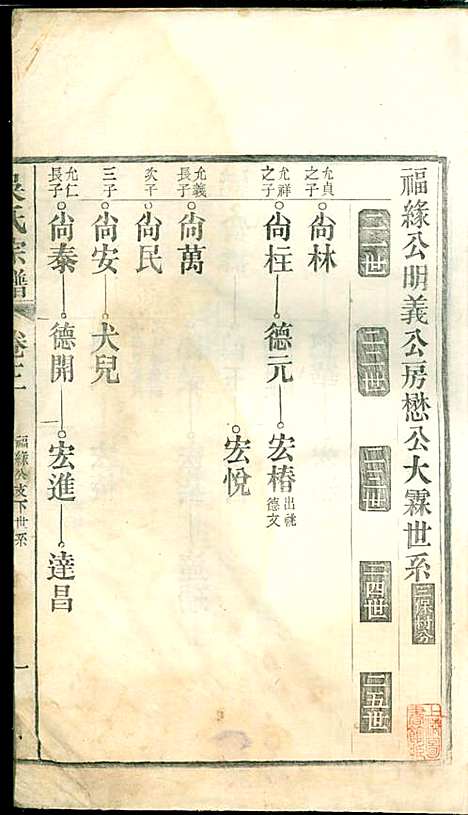 福緣公明義公房懋公大霖世系 三保村分
二一世 二二世 二三世 二四世 二五世
允貞之子 尙林
允祥之子 尙枉 德元 宏椿 出祧德文
宏悅
允義長子 尙萬
次子 尙民
三子 尙安 犬兒
允仁長子 尙泰 德開 宏進 達昌
吳氏宗譜 卷十二 福緣公支下世系 一